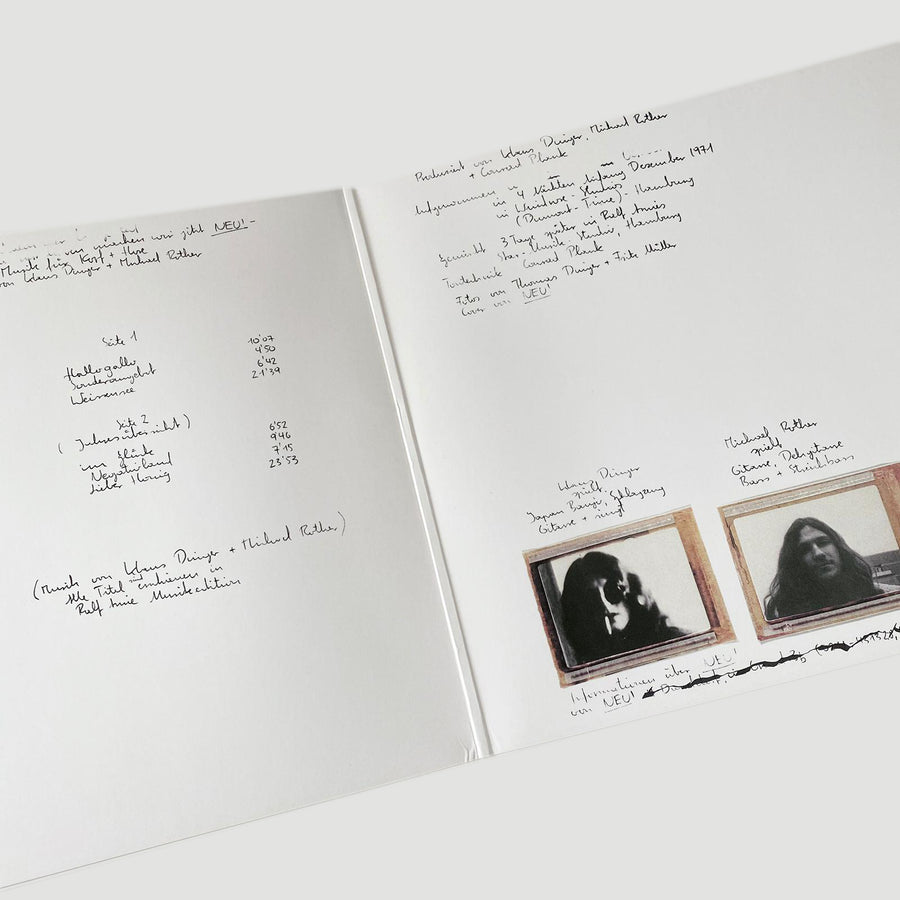 machen wir jetzt NEU! -
Musik für Kopf + Hose
von Klaus Dinger + Michael Rother
Seite 1
Hallogallo 10'07
Sonderangebot 4'50
Weissensee 6'42
21'39
Seite 2
(Jahresübersicht)
im Glück 6'52
Negativland 9'46
Lieber Honig 7'15
23'53
(Musik von Klaus Dinger + Michael Rother)
alle Titel erschienen in
Ralf Arnie Musikedition
Produziert von Klaus Dinger, Michael Rother
+ Conrad Plank
Aufgenommen
in 4 Nächten Anfang Dezember 1971
in Windrose-Studios
(Dumont-Time) - Hamburg
Gemischt 3 Tage später in Ralf Arnies
Star-Musik-Studio, Hamburg
Tontechnik Conrad Plank
Fotos von Thomas Dinger + Fritz Müller
Cover von NEU!
Klaus Dinger
spielt
Japan Banjo, Schlagzeug
Gitarre + singt
Michael Rother
spielt
Gitarre, Dehgitarre
Bass + Streichbass
Informationen über NEU!
von NEU!